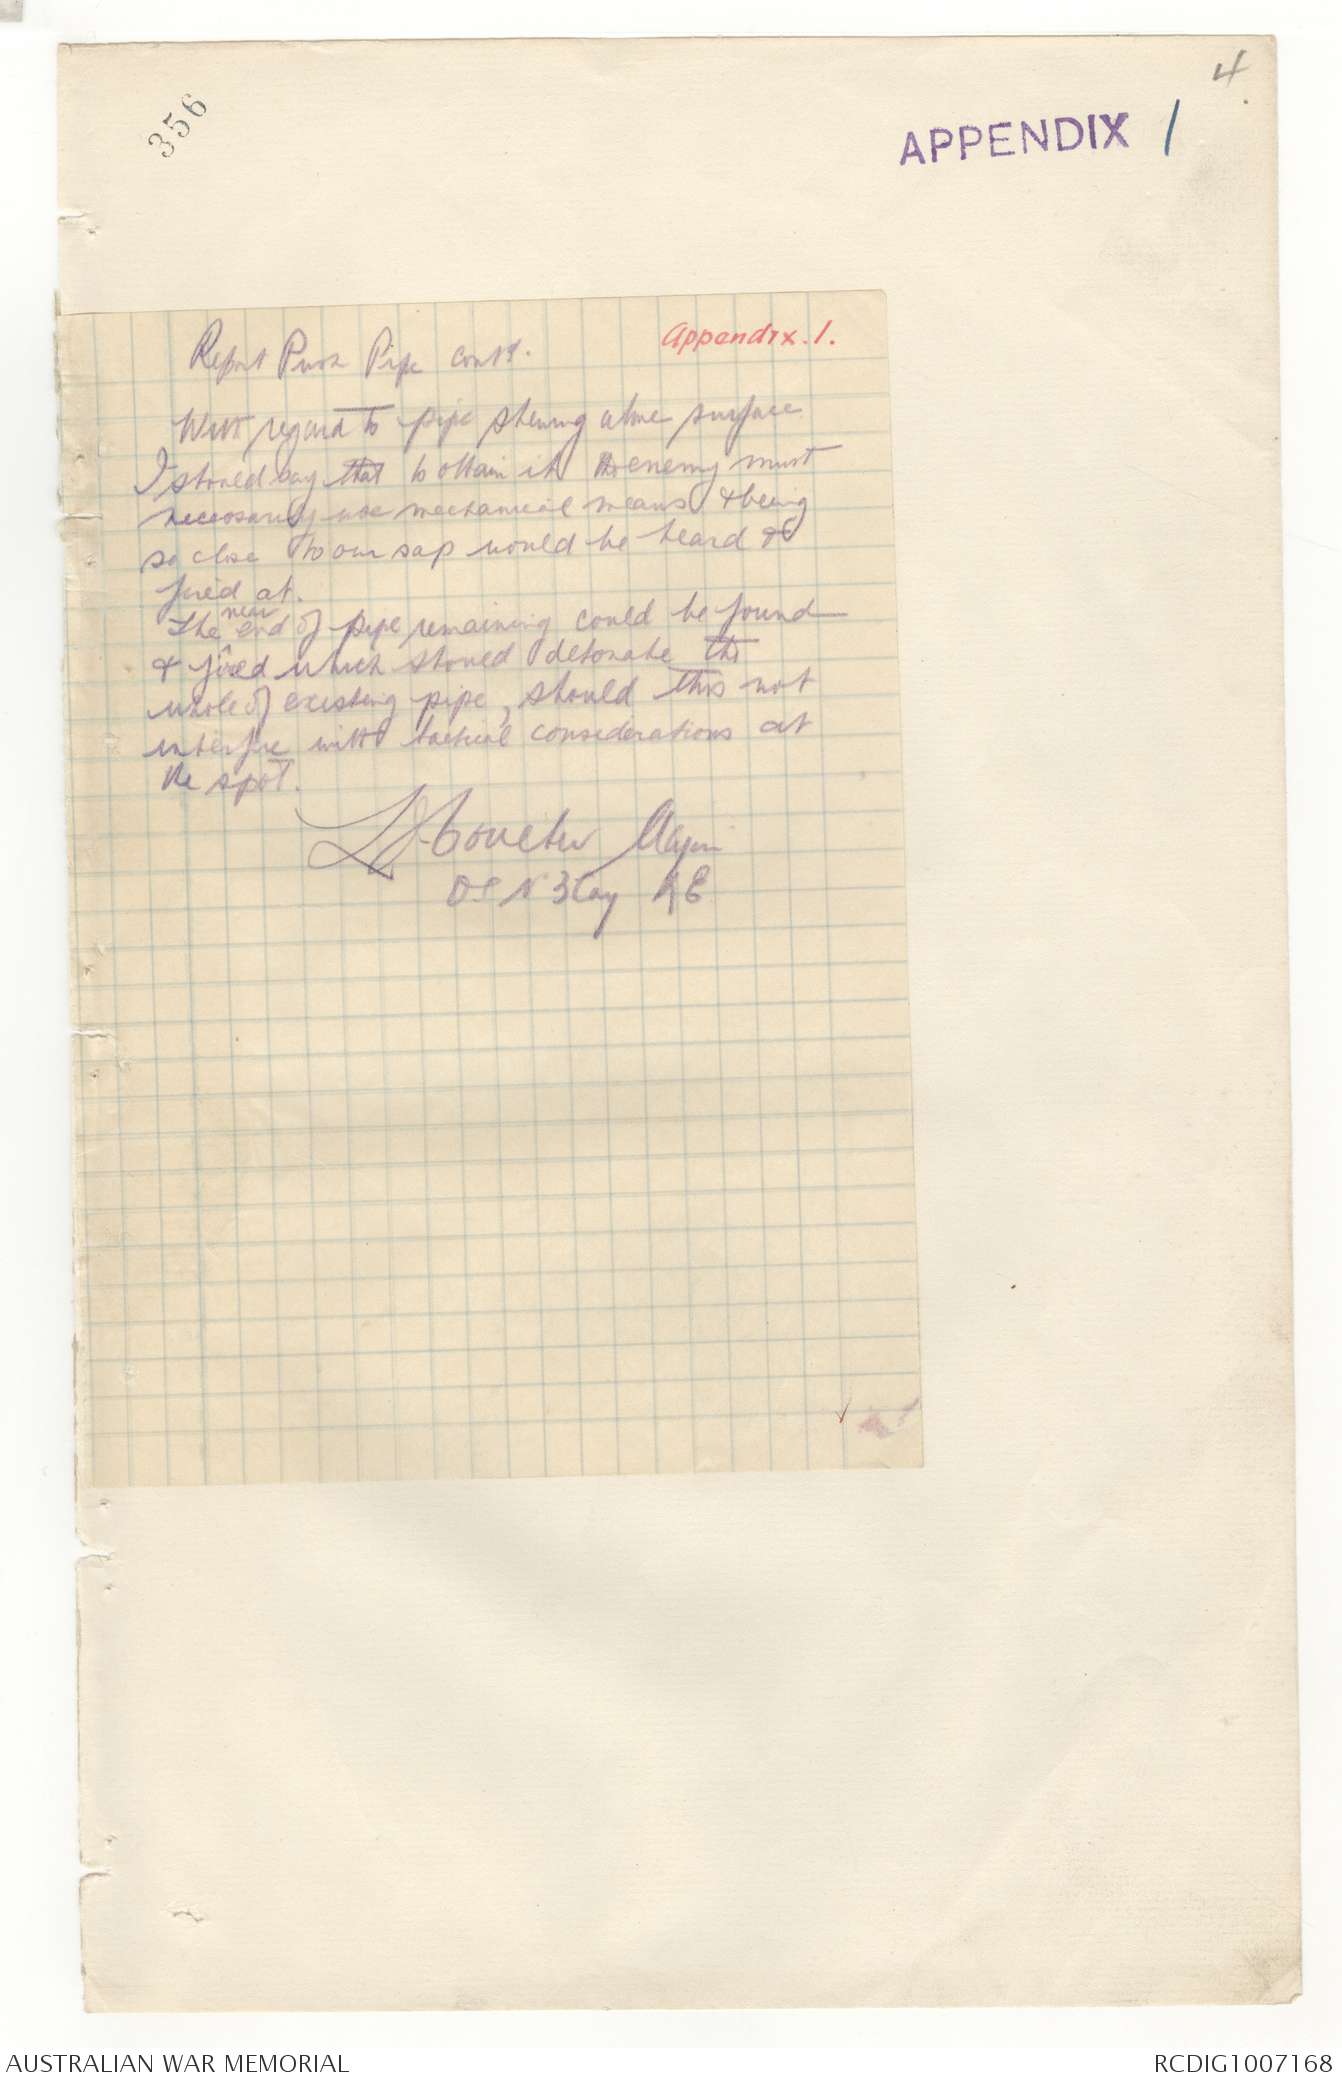 4.
356
APPENDIX 1
Appendix. 1.
Report Push Pipe contd.
With regard to pipe shewing above surface
I should say that to obtain it the enemy must
necessarily use mechanical means & being
so close to our sap would be heard &
fired at.
The near end of pipe remaining could be found
& fired which should detonate the
whole of existing pipe, should this not
interfere with tactical considerations at
the spot.
Coulter Major
3 Coy
AUSTRALIAN WAR MEMORIAL
RCDIG1007168